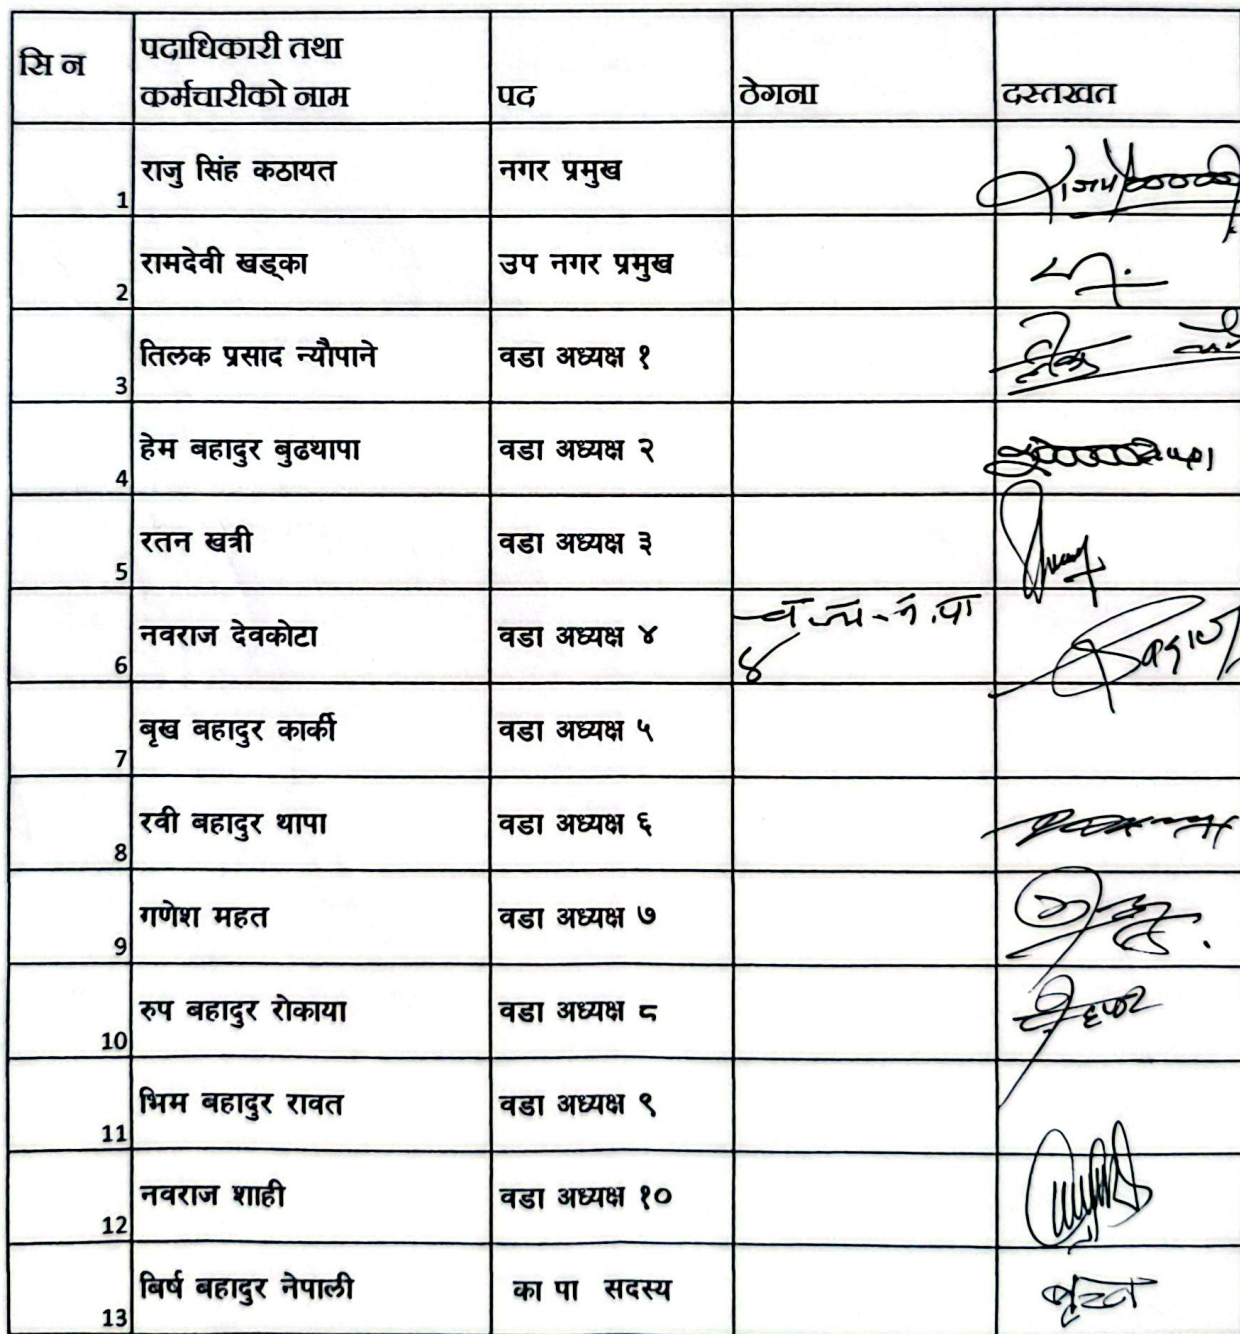 सि न पदाधिकारी तथा कर्मचारीको नाम पद ठेगना दस्तखत
1 राजु सिंह कठायत नगर प्रमुख
2 रामदेवी खड्का उप नगर प्रमुख
3 तिलक प्रसाद न्यौपाने वडा अध्यक्ष १
4 हेम बहादुर बुढथापा वडा अध्यक्ष २
5 रतन खत्री वडा अध्यक्ष ३
6 नवराज देवकोटा वडा अध्यक्ष ४ न.पा ४
7 बृख बहादुर कार्की वडा अध्यक्ष ५
8 रवी बहादुर थापा वडा अध्यक्ष ६
9 गणेश महत वडा अध्यक्ष ७
10 रुप बहादुर रोकाया वडा अध्यक्ष ८
11 भिम बहादुर रावत वडा अध्यक्ष ९
12 नवराज शाही वडा अध्यक्ष १०
13 बिर्ष बहादुर नेपाली का पा सदस्य